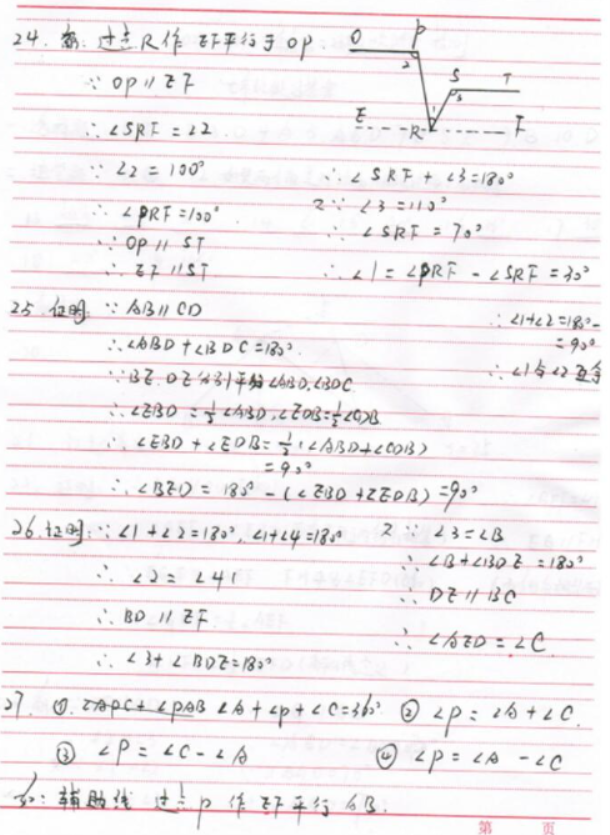 24. 解: 过点R作EF平行于OP
∵ OP∥EF
∴ ∠SRF=∠2
∵ ∠2=100°
∴ ∠PRF=100°
∵ OP∥ST
∴ EF∥ST
O P
2
S T
3
1
E R F
∴ ∠SRF+∠3=180°
又∵ ∠3=110°
∴ ∠SRF=70°
∴ ∠1=∠PRF-∠SRF=30°
25 证明: ∵ AB∥CD
∴ ∠ABD+∠BDC=180°.
∵ BE, DE分别平分∠ABD, ∠BDC
∴ ∠EBD=½∠ABD, ∠EDB=½∠CDB
∴ ∠EBD+∠EDB=½(∠ABD+∠CDB)
=90°
∴ ∠BED=180°-(∠EBD+∠EDB)=90°
∴ ∠1+∠2=180°-
=90°
∴ ∠1与∠2互余
26 证明: ∵ ∠1+∠2=180°, ∠1+∠4=180°
∴ ∠2=∠4
∴ BD∥EF
∴ ∠3+∠BDE=180°
又∵ ∠3=∠B
∴ ∠B+∠BDE=180°
∴ DE∥BC
∴ ∠AED=∠C
27. ① ∠APC=∠PAB ∠A+∠P+∠C=360° ② ∠P=∠A+∠C.
③ ∠P=∠C-∠A ④ ∠P=∠A-∠C
辅助线 过点P作EF平行AB.
第 页